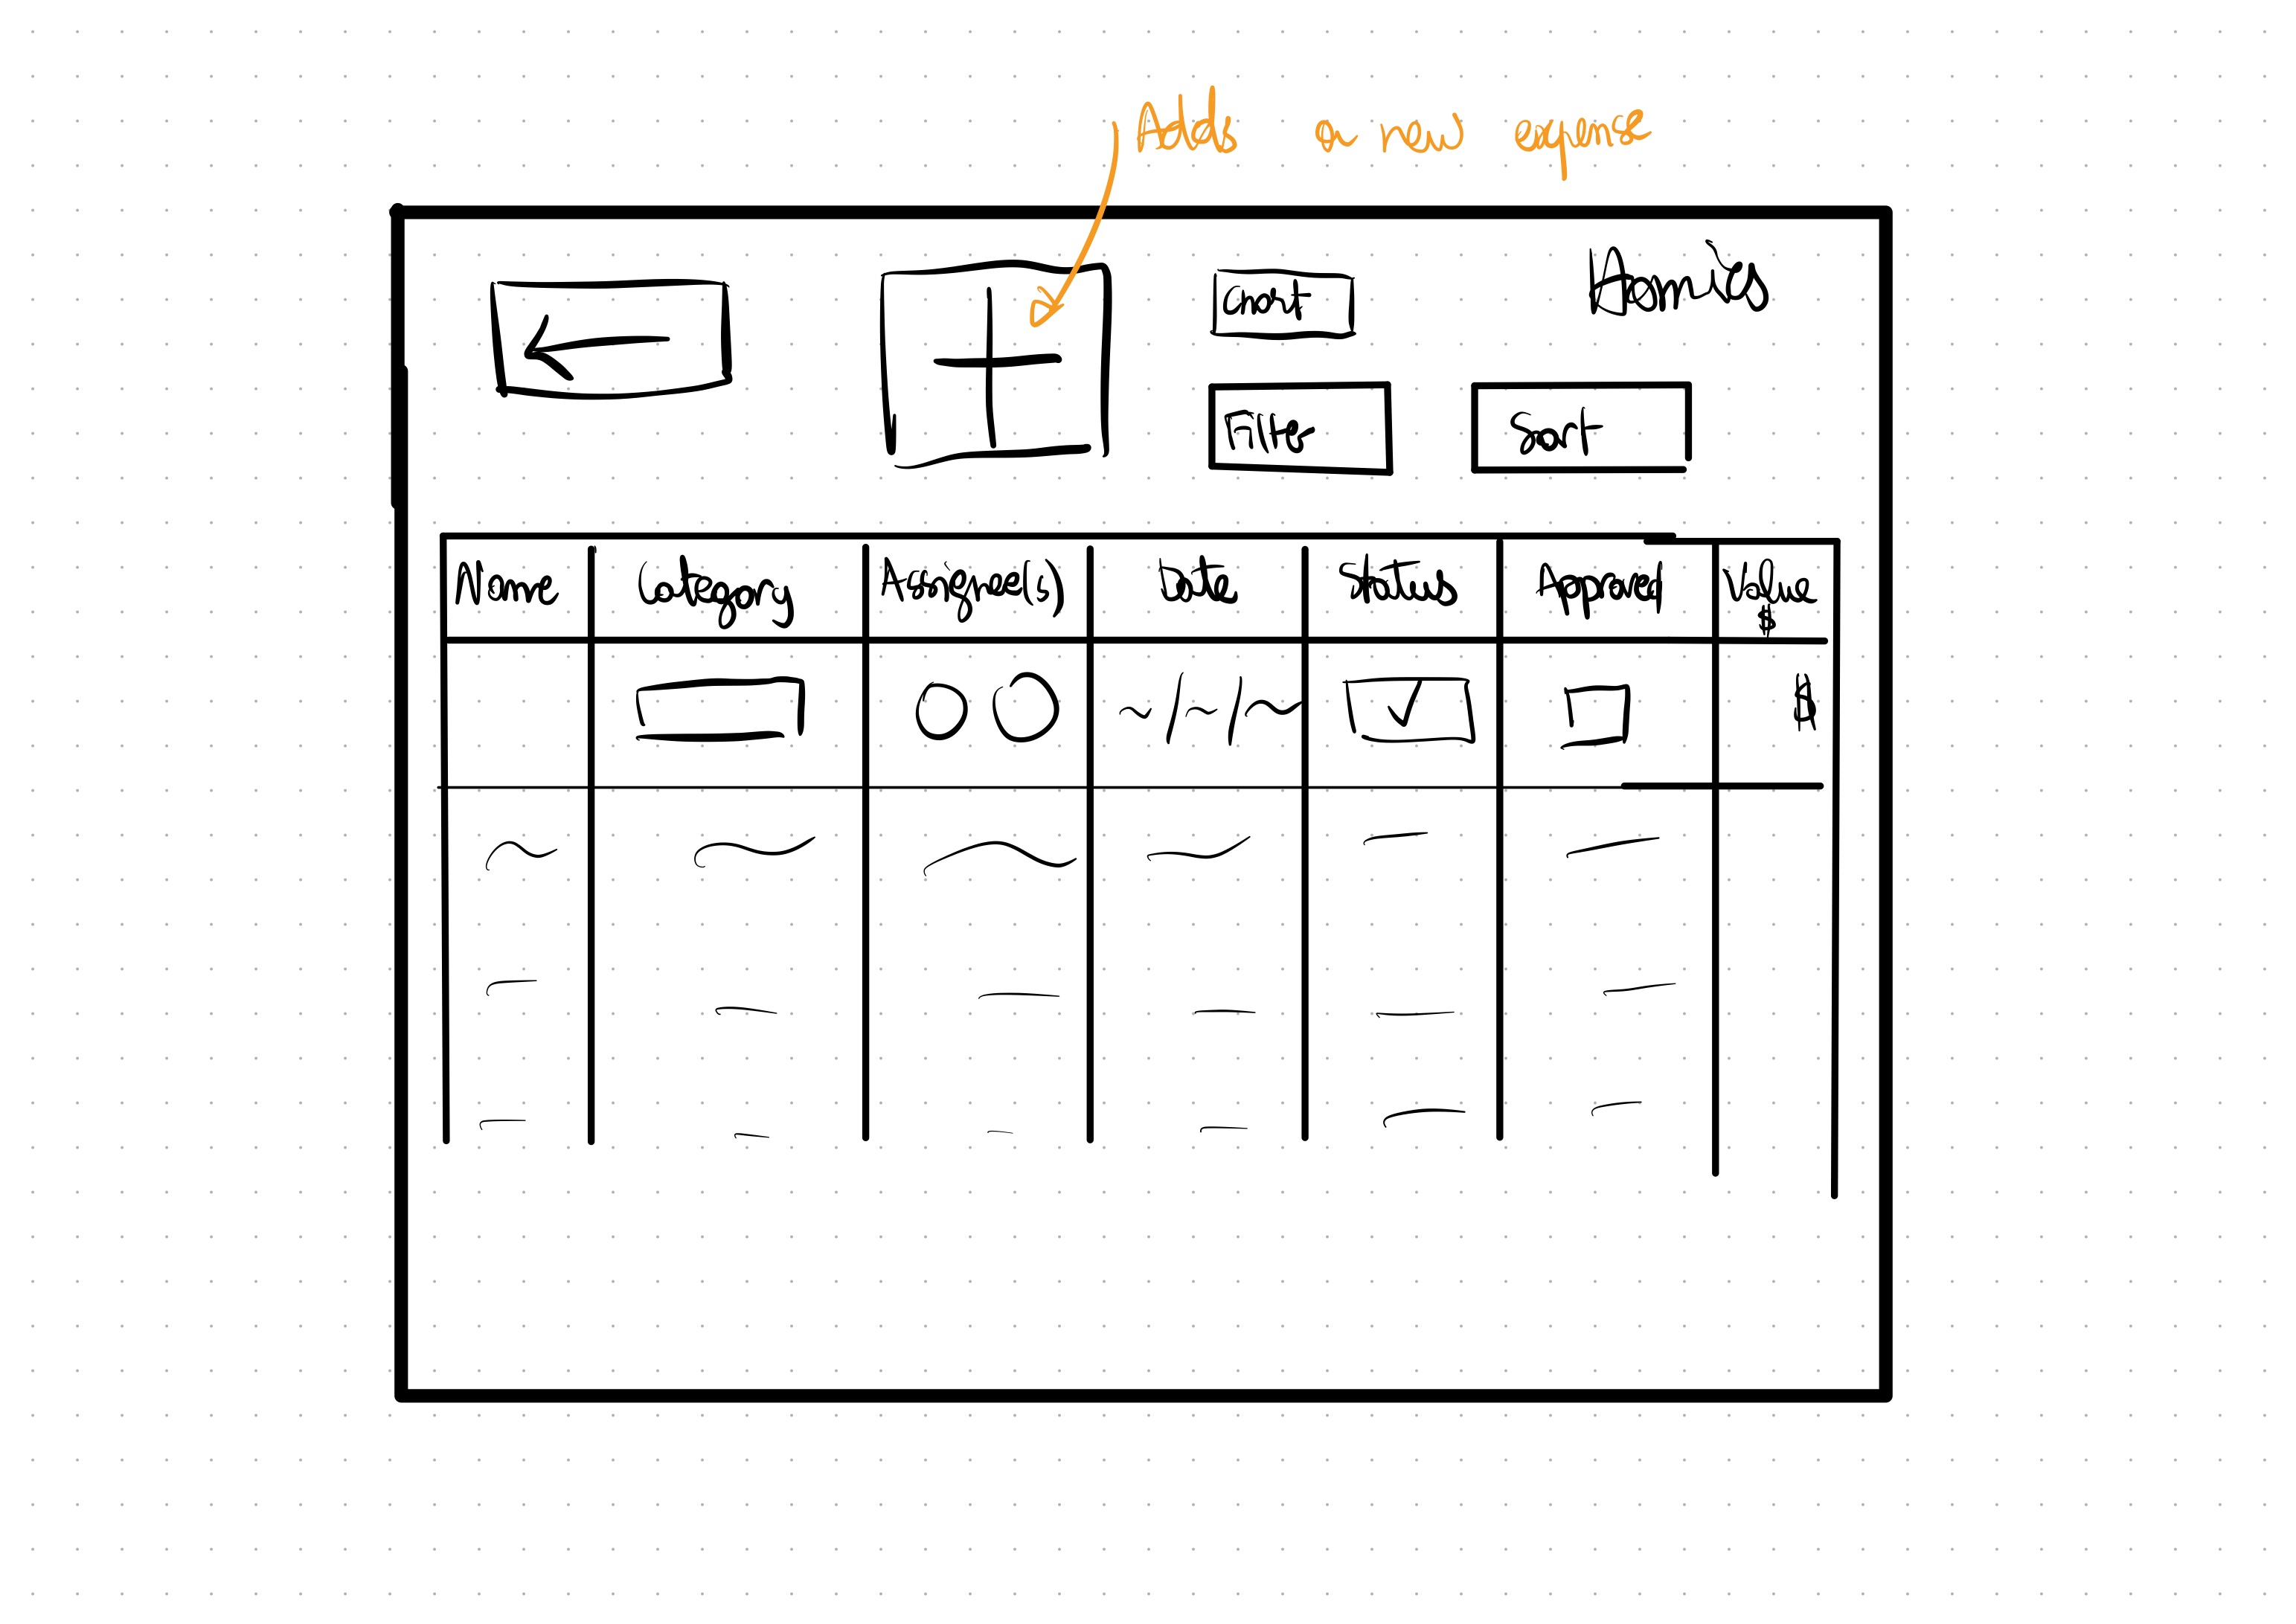 Adds a new expense
Filter
Sort
Name
Category
Assignee(s)
Date
Status
Approved
Value
$
$